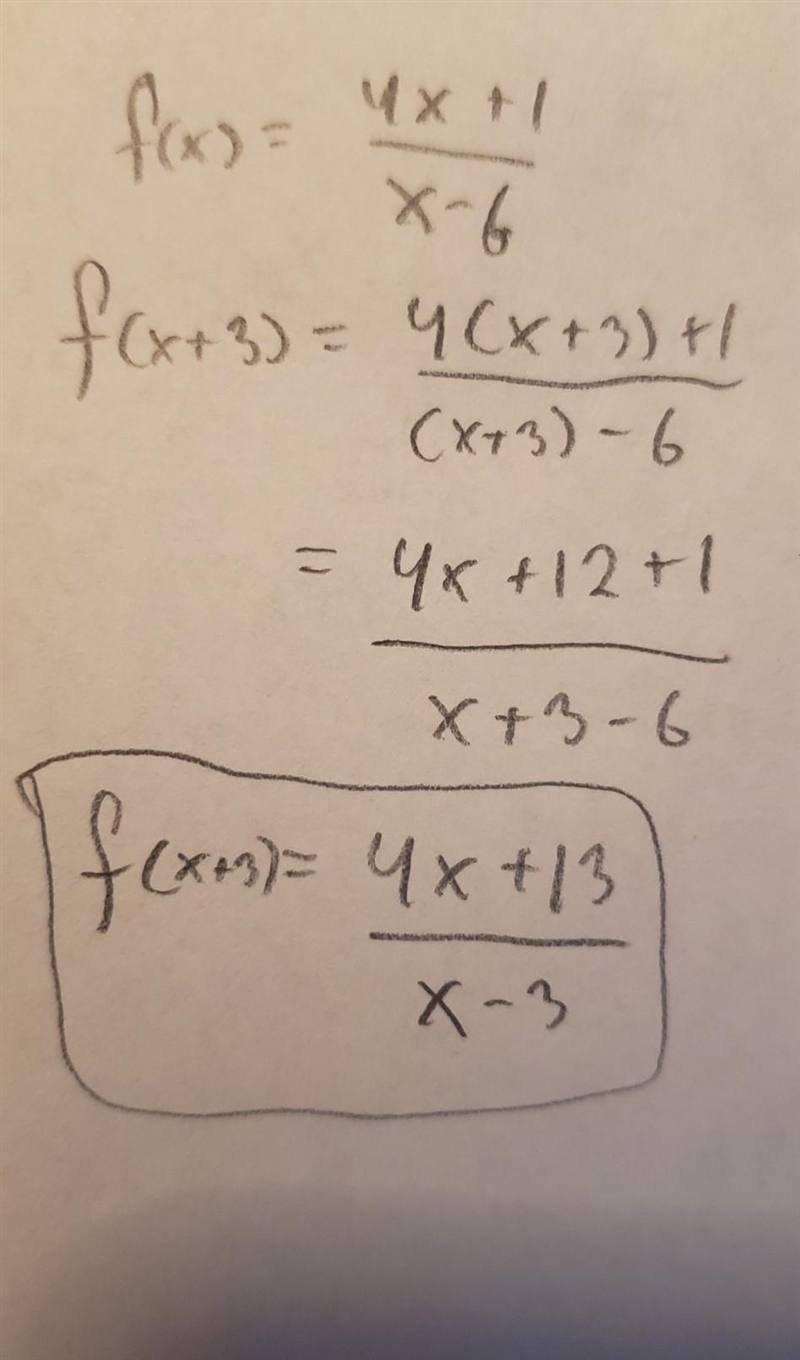 f(x) = (4x + 1)/(x - 6)
f(x+3) = (4(x+3)+1)/((x+3) - 6)
= (4x + 12 + 1)/(x + 3 - 6)
f(x+3) = (4x + 13)/(x - 3)